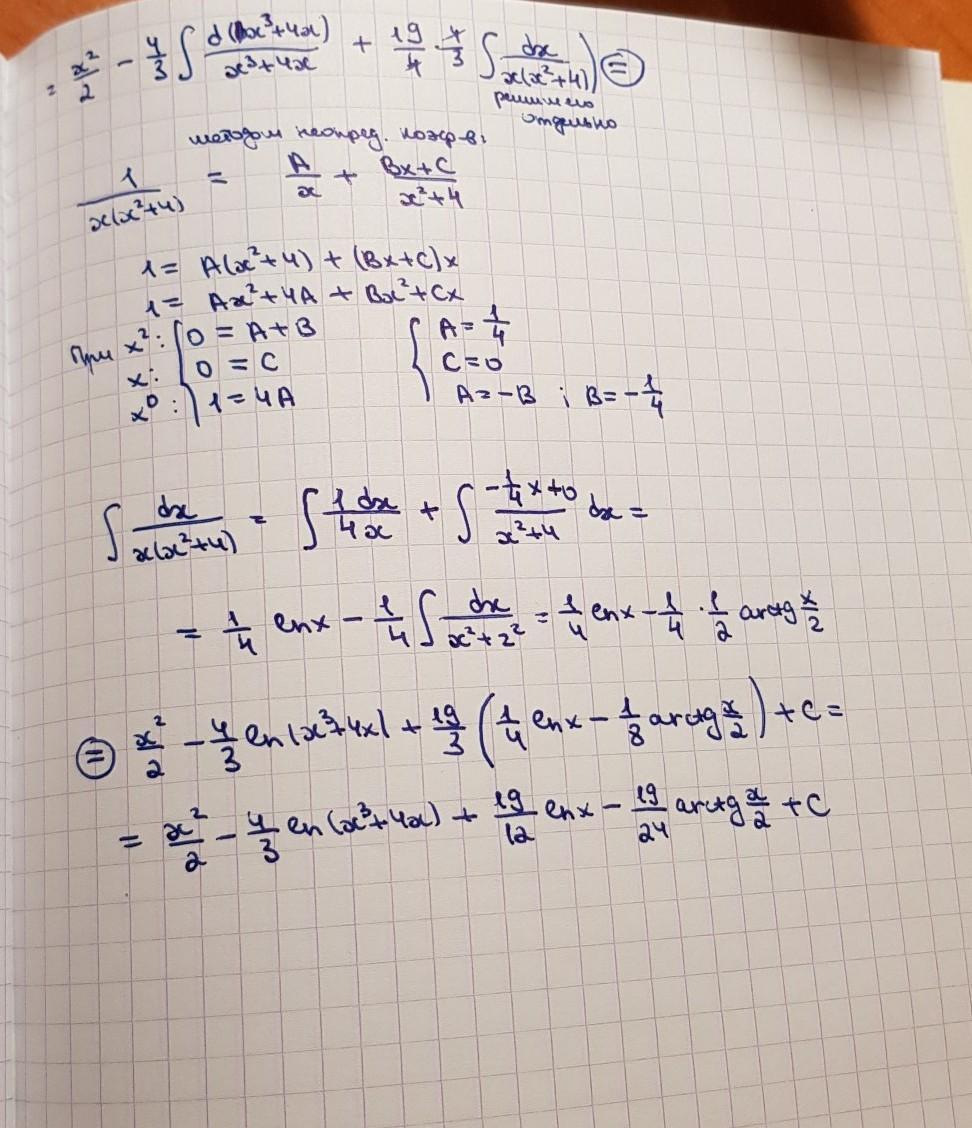 = x²/2 - 4/3 ∫ d(x³+4x)/(x³+4x) + 19/4 · 4/3 ∫ dx/(x(x²+4)) ⊜
решим его
отдельно
методом неопред. коэф-в:
1/(x(x²+4)) = A/x + (Bx+C)/(x²+4)
1 = A(x²+4) + (Bx+C)x
1 = Ax²+4A + Bx²+Cx
При x²: { 0 = A+B { A = 1/4
x: 0 = C C = 0
x⁰: 1 = 4A A = -B ; B = -1/4
∫ dx/(x(x²+4)) = ∫ 1dx/4x + ∫ (-1/4 x+0)/(x²+4) dx =
= 1/4 ln x - 1/4 ∫ dx/(x²+2²) = 1/4 ln x - 1/4 · 1/2 arctg x/2
⊜ x²/2 - 4/3 ln(x³+4x) + 19/3 (1/4 ln x - 1/8 arctg x/2) + C =
= x²/2 - 4/3 ln(x³+4x) + 19/12 ln x - 19/24 arctg x/2 + C